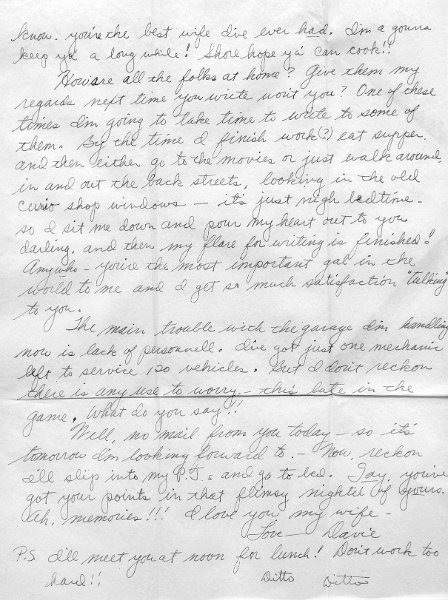 know. you're the best wife I've ever had. I'm a gonna
keep ya a long while! Shore hope ya' can cook!!
How are all the folks at home? Give them my
regards next time you write won't you? One of these
times I'm going to take time to write to some of
them. By the time I finish work(?) eat supper,
and then either go to the movies or just walk around
in and out the back streets, looking in the old
curio shop windows - it's just nigh bedtime.
so I sit me down and pour my heart out to you
darling, and then my flare for writing is finished!
Anywho - you're the most important gal in the
world to me and I get so much satisfaction "talking"
to you.
The main trouble with the garage I'm handling
now is lack of personnell. I've got just one mechanic
left to service 120 vehicles. But I don't reckon
there is any use to worry - this late in the
game. What do you say!!
Well, no mail from you today - so it's
tomorrow I'm looking forward to. - Now, reckon
I'll slip into my P.J.s and go to bed. Say, you've
got your points in that flimsy nightie of yours.
Ah, memories!!! I love you my wife -
Love - Davie
P.S. I'll meet you at noon for lunch! Don't work too
hard!! Ditto Ditto